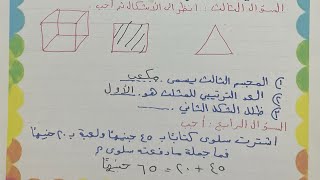 السؤال الثالث : انظر الأشكال ثم أجب
① المجسم الثالث يسمى مكعب
② العدد الترتيبي للمثلث هو الأول
③ ظلل الشكل الثاني
السؤال الرابع : أجب
اشترت سلوى كتاباً بـ ٤٥ جنيهاً ولعبة بـ ٢٠ جنيهاً
فما جملة ما دفعته سلوى ؟
٤٥ + ٢٠ = ٦٥ جنيهاً